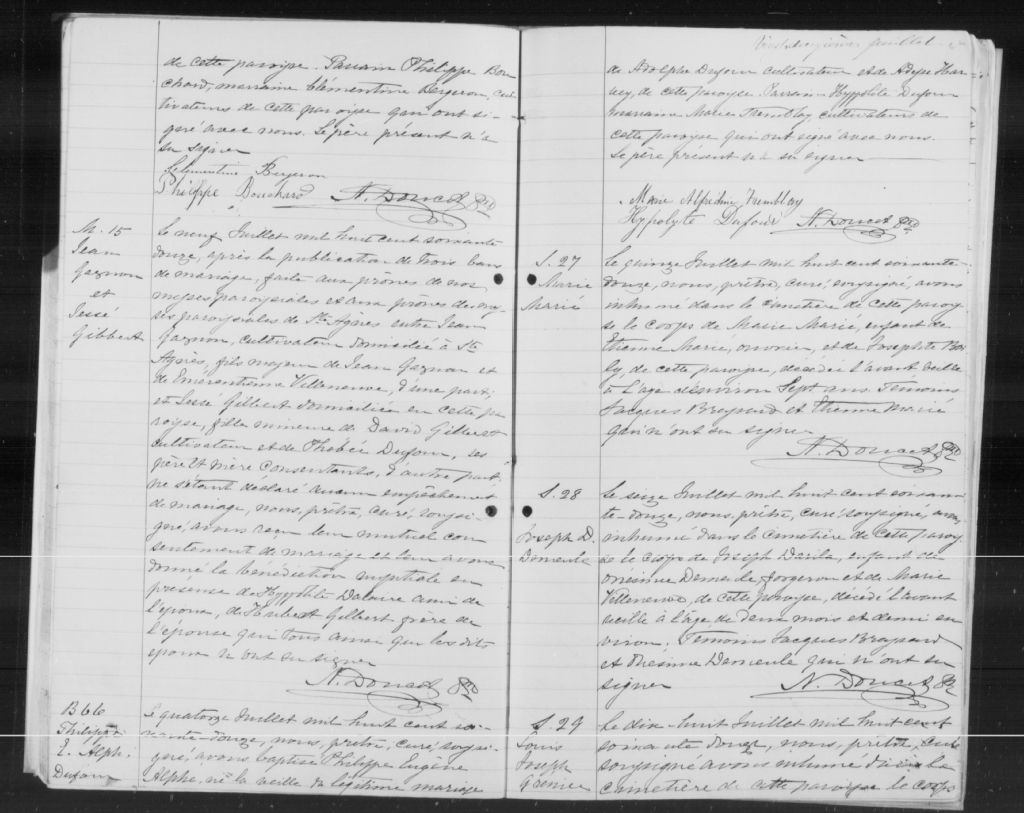 de cette paroisse. Parrain Philippe Bou
chard, marraine Clémentine Bergeron, cul
tivateurs de cette paroisse qui ont si-
gné avec nous. Le père présent n'a
su signer
Clementine Bergeron
Philippe Bouchard N. Doucet Ptr
M. 15
Jean
Gagnon
et
Jessé
Gilbert
Le neuf Juillet mil huit cent soixante
douze, après la publication de trois bans
de mariage, faite aux prônes de nos
messes paroissiales et aux prônes des mes
ses paroissiales de Ste Agnès entre Jean
Gagnon, cultivateur domicilié à Ste
Agnès, fils majeur de Jean Gagnon et
de Emérentienne Villeneuve, d'une part;
et Jessé Gilbert domiciliée en cette pa
roisse, fille mineure de David Gilbert
cultivateur et de Phébée Dufour, ses
père et mère consentants, d'autre part,
ne s'étant déclaré aucun empêchement
de mariage, nous, prêtre, curé, soussi-
gné, avons reçu leur mutuel con
sentement de mariage et leur avons
donné la bénédiction nuptiale en
présence de Hyppolite Dalaire ami de
l'époux, de Hubert Gilbert frère de
l'épouse qui tous ainsi que les dits
époux n'ont su signer
N. Doucet Ptr
B 66
Philippe
E. Alph.
Dufour
Le quatorze Juillet mil huit cent soi-
xante-douze, nous, prêtre, curé, soussi-
gné, avons baptisé Philippe Eugène
Alphe, né la veille du légitime mariage
juillet
de Adolphe Dufour cultivateur et de Adèle Har
vey, de cette paroisse Parrain Hyppolite Dufour
marraine Marie Tremblay cultivateurs de
cette paroisse qui ont signé avec nous.
Le père présent n'a su signer
Marie Alfédine Tremblay
Hypolyte Dufour N. Doucet Ptr
S. 27
Marie
Marié
Le quinze Juillet mil huit cent soixante-
douze, nous, prêtre, curé, soussigné, avons
inhumé dans le cimetière de cette parois
se le corps de Marie Marié, enfant de
Etienne Marié, ouvrier, et de Josephte
de cette paroisse, décédée l'avant veille
à l'âge d'environ Sept ans. Témoins
Jacques Brassard et Etienne Marié
qui n'ont su signer
N. Doucet Ptr
S. 28
Joseph D.
Demeule
Le seize Juillet mil huit cent soixan-
te-douze, nous, prêtre, curé, soussigné, avons
inhumé dans le cimetière de cette parois
se le corps de Joseph Davila, enfant de
Onésime Demeule forgeron et de Marie
Villeneuve, de cette paroisse, décédé l'avant
veille à l'âge de deux mois et demi en
viron. Témoins Jacques Brassard
et Onesime Demeule qui n'ont su
signer N. Doucet Ptr
S. 29
Louis
Joseph
Grenier
Le dix-huit Juillet mil huit cent
soixante douze, nous, prêtre, curé
soussigné avons inhumé dans le
cimetière de cette paroisse le corps